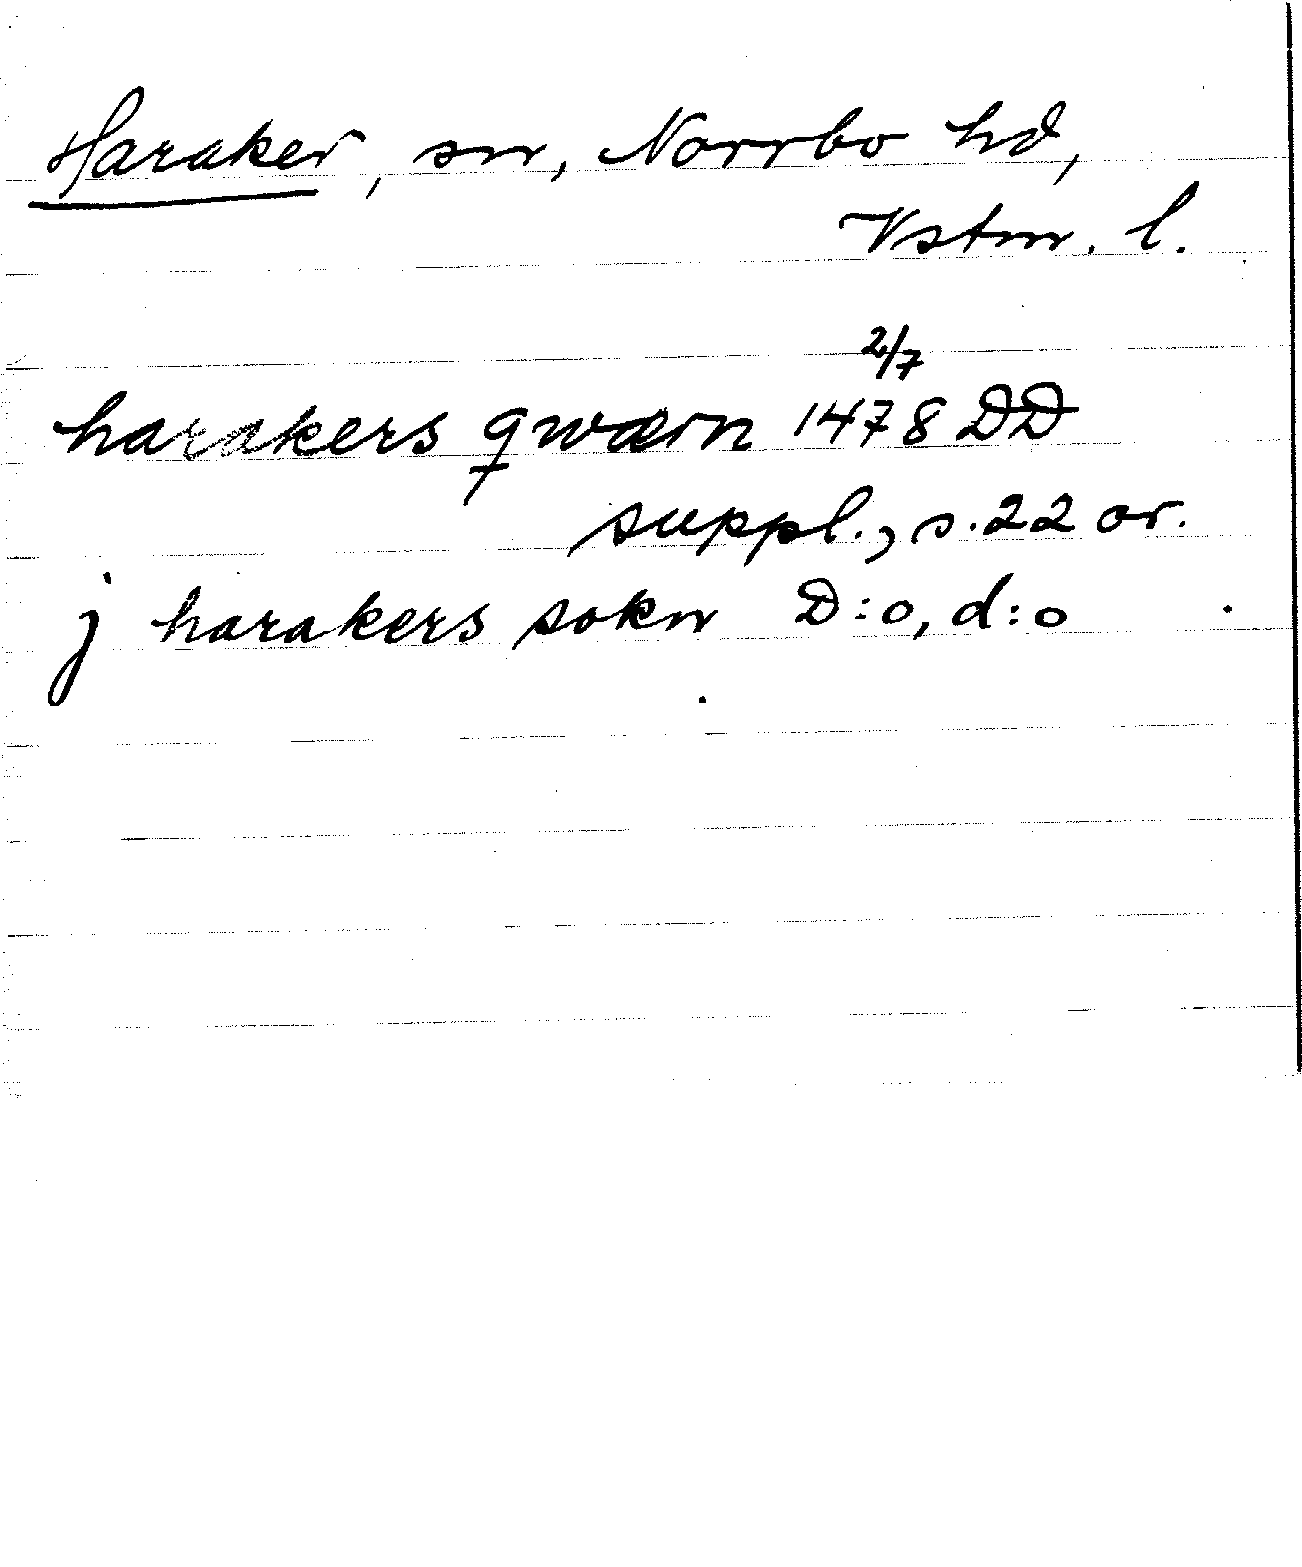 Haraker, sn, Norrbo hd,
Vstm. l.
2/7
harakers qwærn 1478 DD
suppl., s. 22 or.
j harakers sokn D:o, d:o